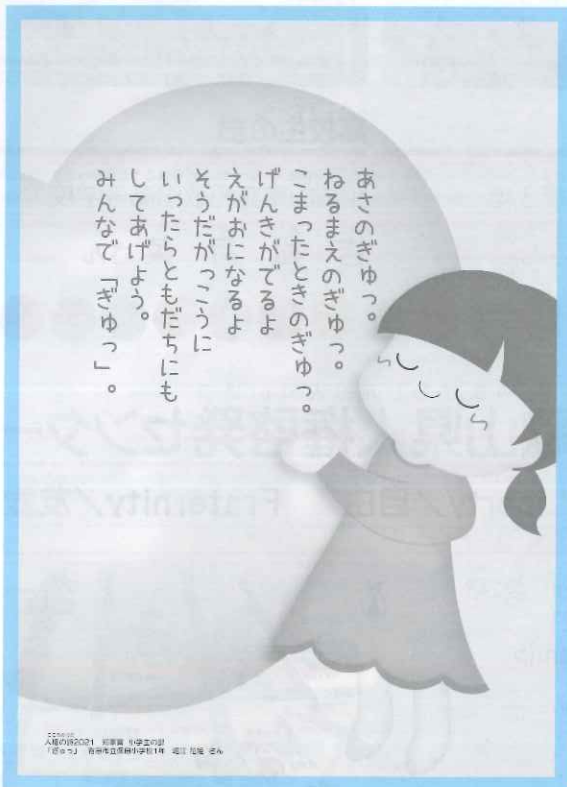 あさのぎゅっ。
ねるまえのぎゅっ。
こまったときのぎゅっ。
げんきがでるよ
えがおになるよ
そうだがっこうに
いったらともだちにも
してあげよう。
みんなで「ぎゅっ」。
人権の詩2021 知事賞 小学生の部
「ぎゅっ」 小学校1年 さん